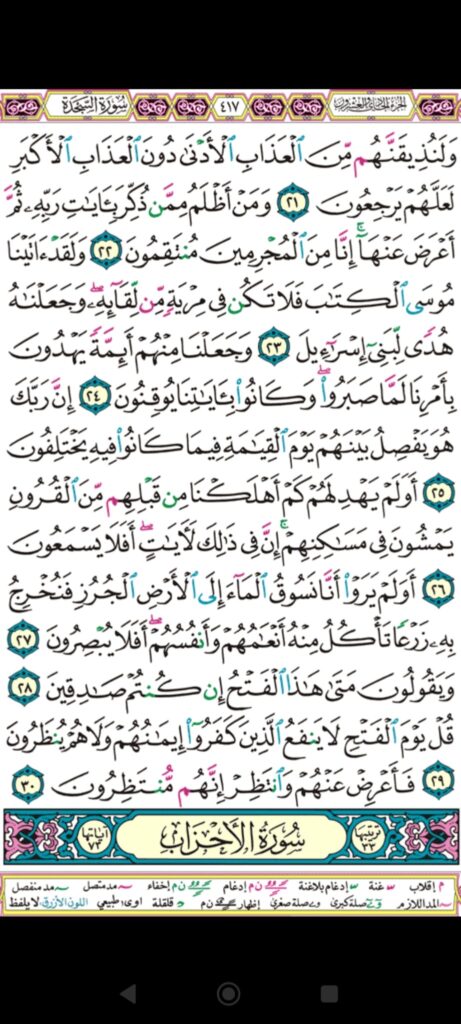 الجزء الحادي والعشرون ٤١٧ سُورَةُ السَّجْدَةِ
وَلَنُذِيقَنَّهُم مِّنَ الْعَذَابِ الْأَدْنَىٰ دُونَ الْعَذَابِ الْأَكْبَرِ
لَعَلَّهُمْ يَرْجِعُونَ ٢١ وَمَنْ أَظْلَمُ مِمَّن ذُكِّرَ بِـَٔايَاتِ رَبِّهِۦ ثُمَّ
أَعْرَضَ عَنْهَآۚ إِنَّا مِنَ الْمُجْرِمِينَ مُنتَقِمُونَ ٢٢ وَلَقَدْ ءَاتَيْنَا
مُوسَى الْكِتَابَ فَلَا تَكُن فِي مِرْيَةٍ مِّن لِّقَآئِهِۦۖ وَجَعَلْنَاهُ
هُدًى لِّبَنِيٓ إِسْرَآءِيلَ ٢٣ وَجَعَلْنَا مِنْهُمْ أَئِمَّةً يَهْدُونَ
بِأَمْرِنَا لَمَّا صَبَرُواۖ وَكَانُوا بِـَٔايَاتِنَا يُوقِنُونَ ٢٤ إِنَّ رَبَّكَ
هُوَ يَفْصِلُ بَيْنَهُمْ يَوْمَ الْقِيَامَةِ فِيمَا كَانُوا فِيهِ يَخْتَلِفُونَ
٢٥ أَوَلَمْ يَهْدِ لَهُمْ كَمْ أَهْلَكْنَا مِن قَبْلِهِم مِّنَ الْقُرُونِ
يَمْشُونَ فِي مَسَاكِنِهِمْۚ إِنَّ فِي ذَالِكَ لَآيَاتٍۖ أَفَلَا يَسْمَعُونَ
٢٦ أَوَلَمْ يَرَوْا أَنَّا نَسُوقُ الْمَآءَ إِلَى الْأَرْضِ الْجُرُزِ فَنُخْرِجُ
بِهِۦ زَرْعًا تَأْكُلُ مِنْهُ أَنْعَامُهُمْ وَأَنفُسُهُمْۖ أَفَلَا يُبْصِرُونَ ٢٧
وَيَقُولُونَ مَتَىٰ هَـٰذَا الْفَتْحُ إِن كُنتُمْ صَادِقِينَ ٢٨
قُلْ يَوْمَ الْفَتْحِ لَا يَنفَعُ الَّذِينَ كَفَرُوٓا إِيمَانُهُمْ وَلَا هُمْ يُنظَرُونَ
٢٩ فَأَعْرِضْ عَنْهُمْ وَانتَظِرْ إِنَّهُم مُّنتَظِرُونَ ٣٠
ترتيبها ٣٣ سُورَةُ الْأَحْزَابِ آياتها ٧٣
م إقلاب غنة إدغام بلاغنة ن م إدغام ن م إخفاء مد متصل مد منفصل
المد اللازم صلة كبرى صلة صغرى إظهار ن م قلقلة اوى: طبيعي اللون الأزرق: لا يلفظ